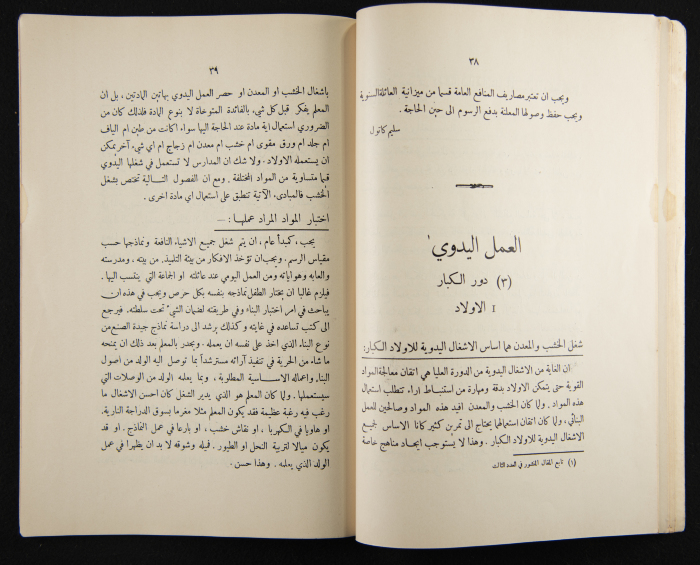 ٣٨
ويجب ان تعتبر مصاريف المنافع العامة قسما من ميزانية العائلة السنوية
ويجب حفظ وصولها المعلنة بدفع الرسوم الى حين الحاجة .
سليم كاتول
العمل اليدوي'
(٣) دور الكبار
I الاولاد
شغل الخشب والمعدن هما اساس الاشغال اليدوية للاولاد الكبار:
ان الغاية من الاشغال اليدوية من الدورة العليا هي اتقان معالجة المواد
القوية حتى يتمكن الاولاد بدقة ومهارة من استنباط اراء تتطلب استعمال
هذه المواد . ولما كان الخشب والمعدن افيد هذه المواد وصالحين للعمل
البنائي، ولما كان اتقان استعمالها يحتاج الى تمرين كثير كانا الاساس لجميع
الاشغال اليدوية للاولاد الكبار . وهذا لا يستوجب ايجاد مناهج خاصة
(١) تابع المقال المنشور في العدد الثالث
٣٩
باشغال الخشب او المعدن او حصر العمل اليدوي بهاتين المادتين ، بل ان
المعلم يفكر قبل كل شيء بالفائدة المتوخاة لا بنوع المادة فلذلك كان من
الضروري استعمال اية مادة عند الحاجة اليها سواء اكانت من طين ام الياف
ام جلد ام ورق مقوى ام خشب ام معدن ام زجاج ام اي شيء آخر يمكن
ان يستعمله الاولاد . ولا شك ان المدارس لا تستعمل في شغلها اليدوي
قيما متساوية من المواد المختلفة . ومع ان الفصول التالية تختص بشغل
الخشب فالمبادىء الآتية تنطبق على استعمال اي مادة اخرى .
اختبار المواد المراد عملها : —
يجب ، كمبدأ عام ، ان يتم شغل جميع الاشياء النافعة ونماذجها حسب
مقياس الرسم . ويجب ان تؤخذ الافكار من بيئة التلميذ. من بيته ، ومدرسته
والعابه وهواياته ومن العمل اليومي عند عائلته او الجماعة التي ينتسب اليها .
فيلزم غالبا ان يختار الطفل نماذجه بنفسه بكل حرص ويجب في هذه ان
يباحث في امر اختبار البناء وفي طريقته لضمان الشيء تحت سلطته. فيرجع
الى كتب تساعده في غايته وكذلك يرشد الى دراسة نماذج جيدة الصنع من
نوع البناء الذي اخذ على نفسه ان يعمله . ويجدر بالمعلم بعد ذلك ان يمنحه
ما شاء من الحرية في تنفيذ آرائه مسترشداً بما توصل اليه الولد من اصول
البناء واعماله الاساسية المطلوبة ، وبما يعلمه الولد من الوصلات التي
سيستعملها . ولما كان المعلم هو الذي يدير الشغل كان احسن الاشغال ما
رغب فيه رغبة عظيمة فقد يكون المعلم مثلا مغرما بسوق الدراجة النارية.
او هاويا في الكهربا ، او نقاش خشب ، او بارعا في عمل النماذج . او قد
يكون ميالا لتربية النحل او الطيور . فميله وشوقه لا بد ان يظهرا في عمل
الولد الذي يعلمه . وهذا حسن .